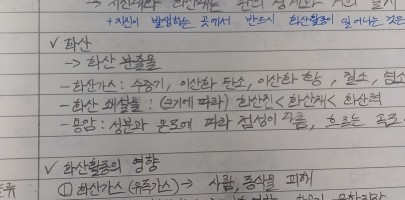 → 지진대와 화산대는 판의 경계와 거의 일치
+ 지진이 발생하는 곳에서 반드시 화산활동이 일어나는 것은
✓ 화산
→ 화산 분출물
- 화산가스 : 수증기, 이산화 탄소, 이산화 황, 질소, 염소
- 화산 쇄설물 : (크기에 따라) 화산진 < 화산재 < 화산력
- 용암 : 성분과 온도에 따라 점성이 다름, 흐르는 속도
✓ 화산활동의 영향
① 화산가스 (유독가스) → 사람, 동식물 피해